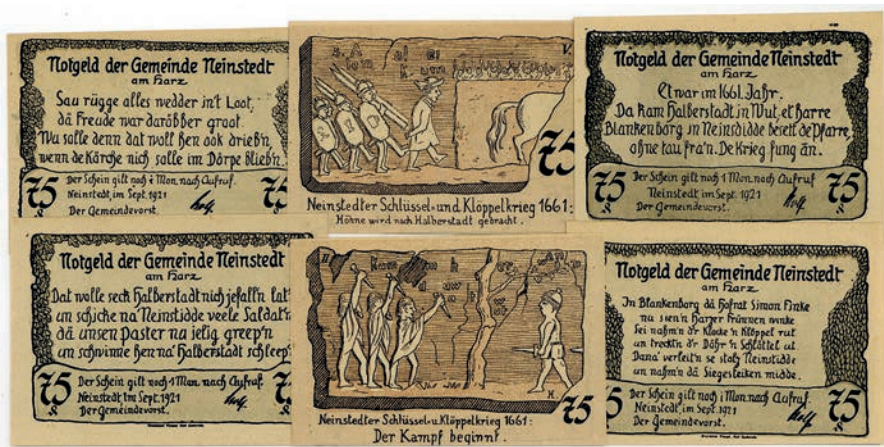 Notgeld der Gemeinde Neinstedt
am Harz
Sau rügge alles wedder in't Loot,
dä Freude war daröbber groot.
Wu solle denn dat woll hen ook drieb'n,
wenn de Körche nich solle im Dörpe blieb'n.
75
Der Schein gilt noch 1 Mon. nach Aufruf.
Neinstedt, im Sept. 1921
Der Gemeindevorst.
75
V.
75
Neinstedter Schlüssel- und Klöppelkrieg 1661:
Höhne wird nach Halberstadt gebracht.
Notgeld der Gemeinde Neinstedt
am Harz
Et war im 1661. Jahr.
Da kam Halberstadt in Wut, et harre
Blankenborg in Neinstidde besett de Pfarre,
ohne tau fra'n. De Krieg fung än.
75
Der Schein gilt noch 1 Mon. nach Aufruf
Neinstedt, im Sept. 1921
Der Gemeindevorst.
75
Notgeld der Gemeinde Neinstedt
am Harz
Dat wolle seck Halberstadt nich jefall'n lat'
un schicke na Neinstidde veele Saldat'n
dä unsen Paster nu jelig greep'n
un schwinne hen na' Halberstadt schleep'
75
Der Schein gilt noch 1 Mon. nach Aufruf.
Neinstedt, im Sept. 1921
Der Gemeindevorst.
75
II
H.
75
Neinstedter Schlüssel- u. Klöppelkrieg 1661:
Der Kampf beginnt.
Notgeld der Gemeinde Neinstedt
am Harz
In Blankenborg dä Hofrat Simon Finke
nu sien'n Harzer Frünnen winke
Sei nahm'n d'r Klocke 'n Klöppel rut
un treckt'n d'r Döhr 'n Schlöttel ut
Dana' verleit'n se stolz Neinstidde
un nahm'n dä Siegesleiken midde.
75
Der Schein gilt noch 1 Mon. nach Aufruf
Neinstedt, im Sept. 1921
Der Gemeindevorst.
75